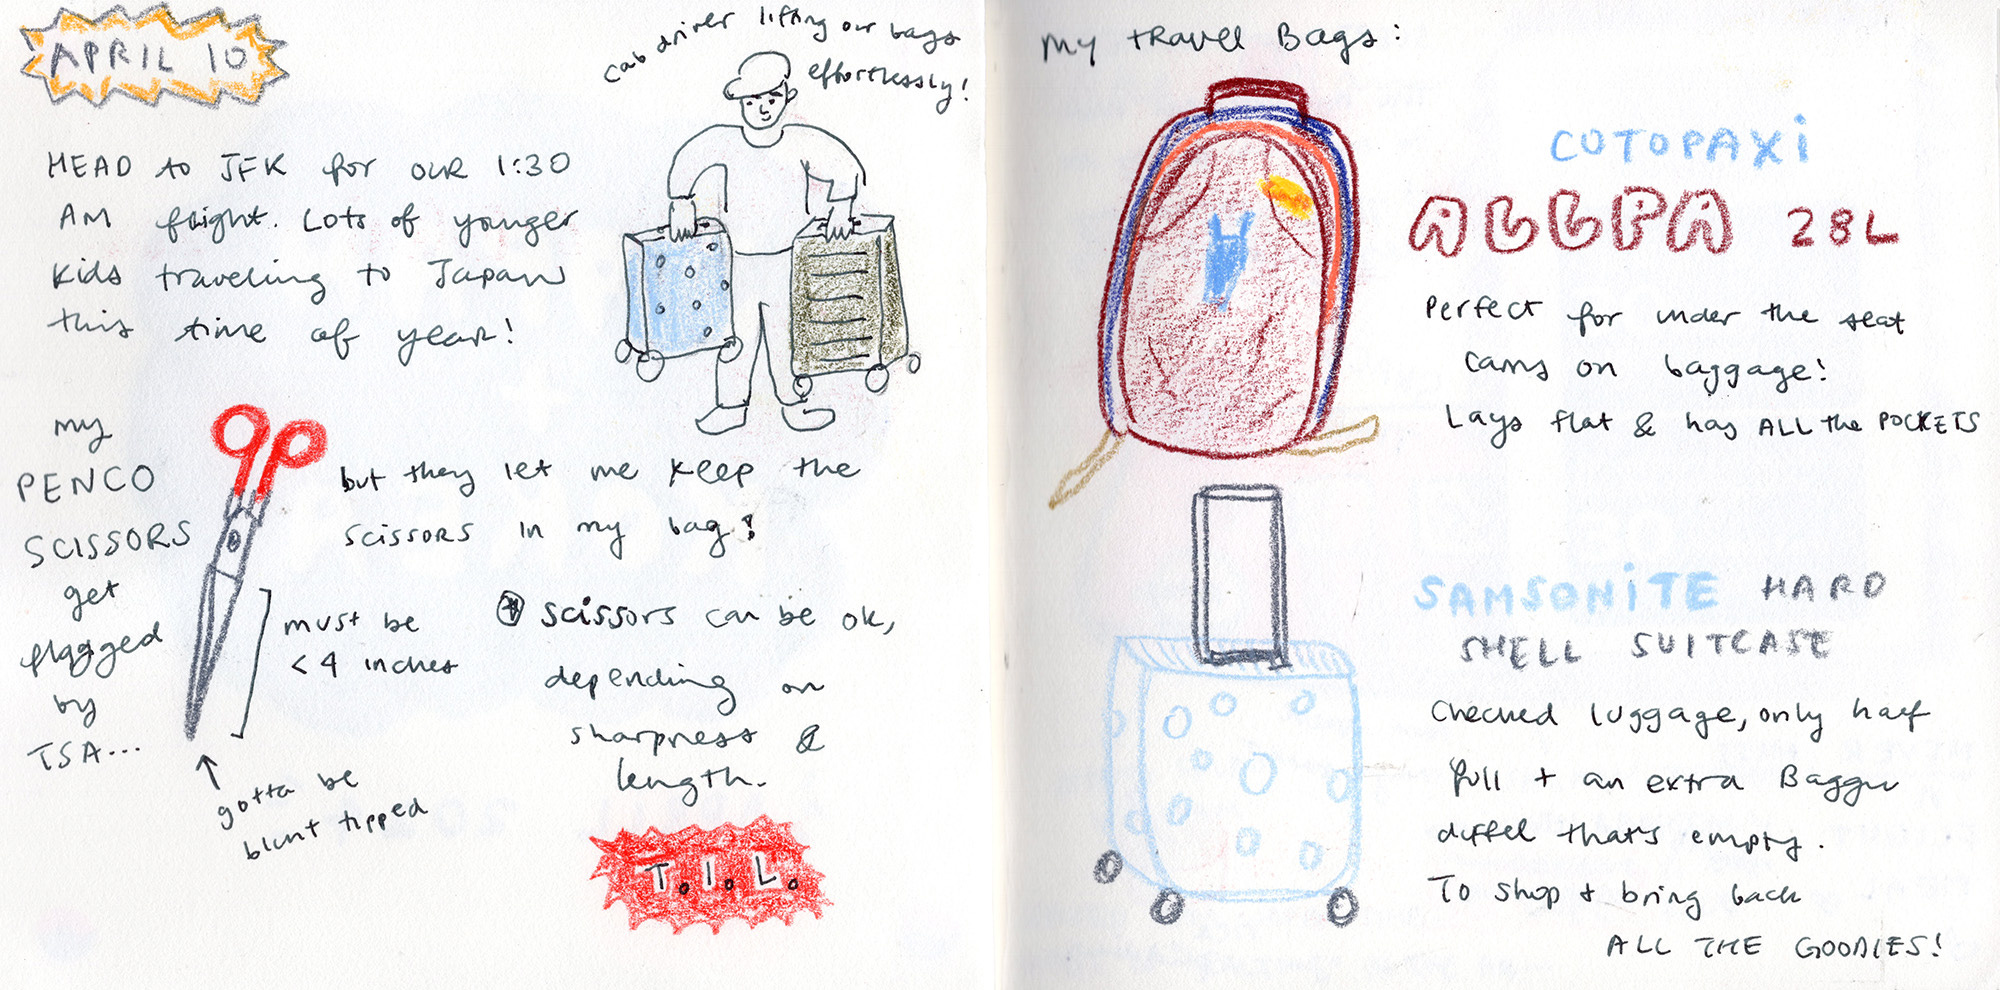 APRIL 10
cab driver lifting our bags
effortlessly!
HEAD to JFK for our 1:30
AM flight. Lots of younger
kids traveling to Japan
this time of year!
my
PENCO
SCISSORS
get
flagged
by
TSA...
but they let me keep the
scissors in my bag!
must be
< 4 inches
gotta be
blunt tipped
* scissors can be ok,
depending on
sharpness &
length.
T.I.L.
My travel Bags:
COTOPAXI
ALLPA 28L
Perfect for under the seat
carry on baggage!
Lays flat & has ALL the POCKETS
SAMSONITE HARD
SHELL SUITCASE
Checked luggage, only half
full + an extra Baggu
duffel that's empty.
To shop + bring back
ALL THE GOODIES!